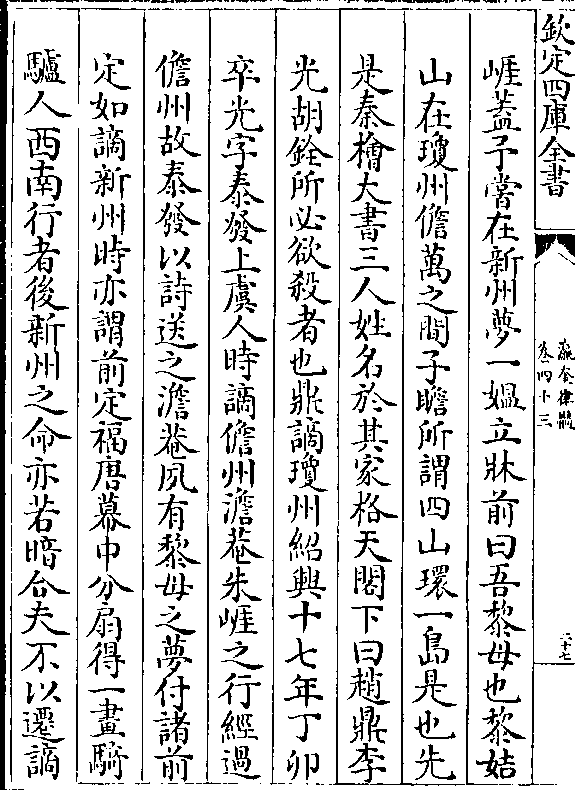 欽定四庫全書
瀛奎律髓
卷四十三
二十七
崕蓋予嘗在新州夢一媪立牀前曰吾黎母也黎姑
山在瓊州儋萬之間子瞻所謂四山環一島是也先
是秦檜大書三人姓名於其家格天閣下曰趙鼎李
光胡銓所必欲殺者也鼎謫瓊州紹興十七年丁卯
卒光字泰發上虞人時謫儋州澹菴朱崕之行經過
儋州故泰發以詩送之澹菴夙有黎母之夢付諸前
定如謫新州時亦謂前定福唐幕中分扇得一畫騎
驢人西南行者後新州之命亦若暗合夫不以遷謫